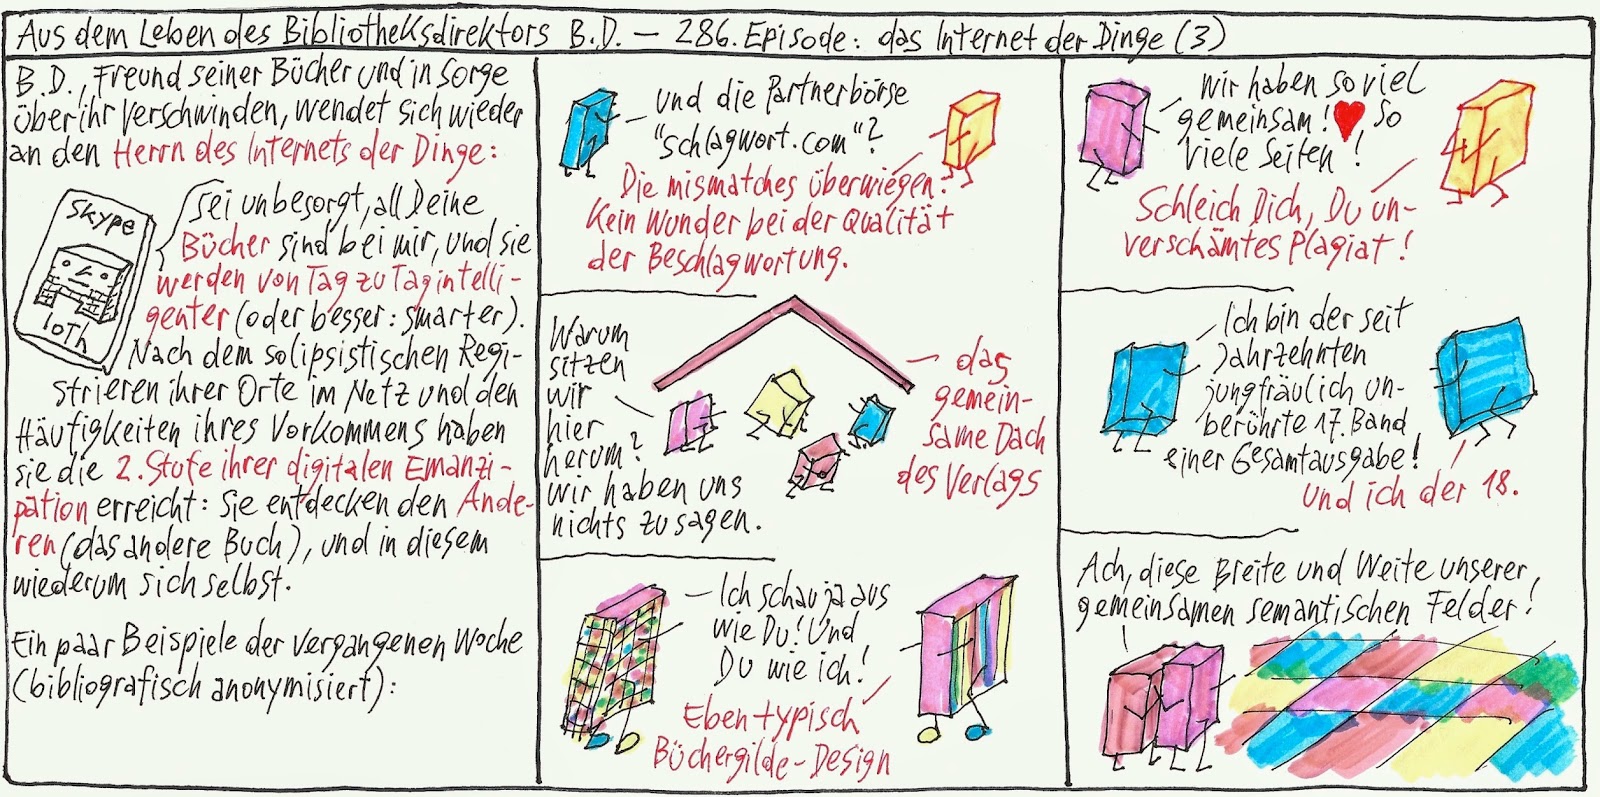 Aus dem Leben des Bibliotheksdirektors B.D. — 286. Episode: das Internet der Dinge (3)
B.D., Freund seiner Bücher und in Sorge
über ihr Verschwinden, wendet sich wieder
an den Herrn des Internets der Dinge:
Skype
IoTh
Sei unbesorgt, all Deine
Bücher sind bei mir, und sie
werden von Tag zu Tag intelli-
genter (oder besser: smarter).
Nach dem solipsistischen Regi-
strieren ihrer Orte im Netz und den
Häufigkeiten ihres Vorkommens haben
sie die 2. Stufe ihrer digitalen Emanzi-
pation erreicht: Sie entdecken den Ande-
ren (das andere Buch), und in diesem
wiederum sich selbst.
Ein paar Beispiele der vergangenen Woche
(bibliografisch anonymisiert):
und die Partnerbörse
"schlagwort.com"?
Die mismatches überwiegen.
Kein Wunder bei der Qualität
der Beschlagwortung.
Warum
sitzen
wir
hier
herum?
Wir haben uns
nichts zu sagen.
das
gemein-
same Dach
des Verlags
Ich schau ja aus
wie Du! Und
Du wie ich!
Eben typisch
Büchergilde-Design
Wir haben so viel
gemeinsam! So
viele Seiten!
Schleich Dich, Du un-
verschämtes Plagiat!
Ich bin der seit
Jahrzehnten
jungfräulich un-
berührte 17. Band
einer Gesamtausgabe!
Und ich der 18.
Ach, diese Breite und Weite unserer
gemeinsamen semantischen Felder!